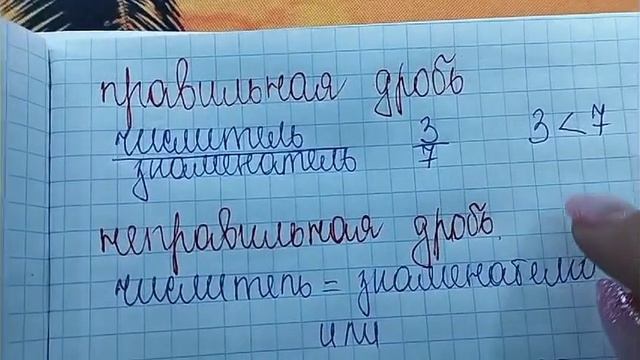 правильная дробь
числитель
знаменатель 3/7 3 < 7
неправильная дробь
числитель = знаменателю
или